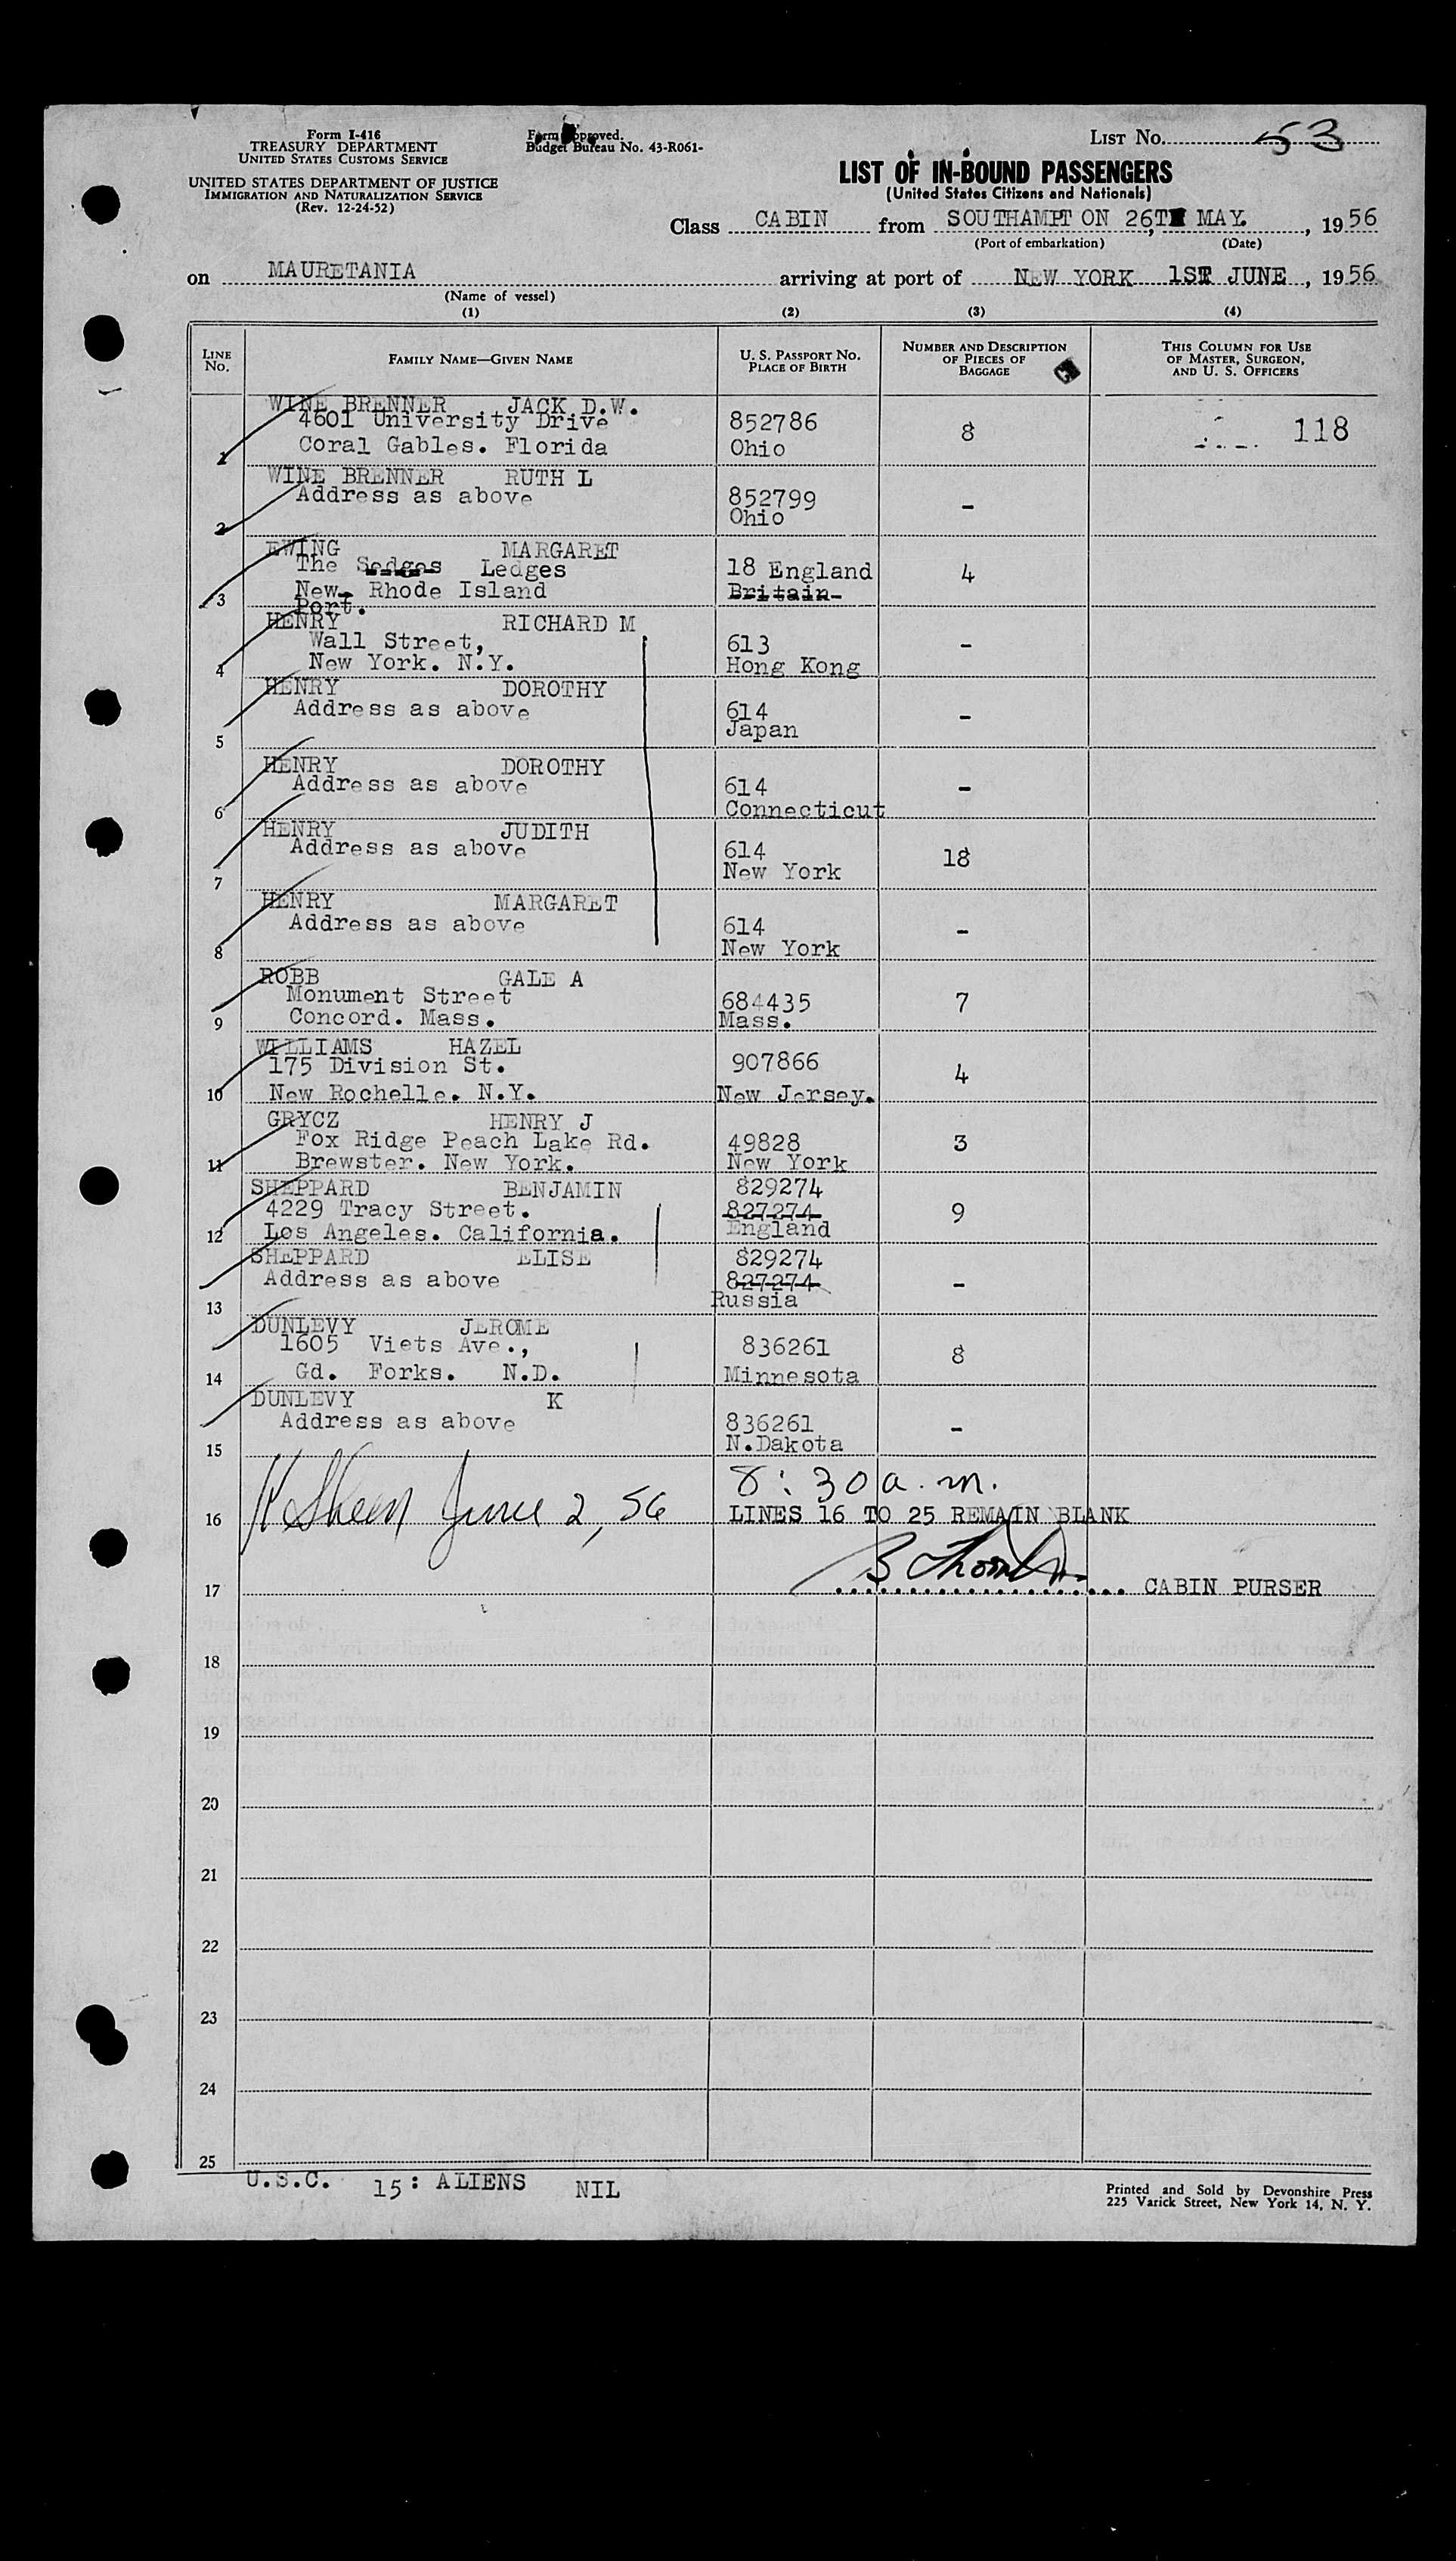 Form I-416
TREASURY DEPARTMENT
UNITED STATES CUSTOMS SERVICE
UNITED STATES DEPARTMENT OF JUSTICE
IMMIGRATION AND NATURALIZATION SERVICE
(Rev. 12-24-52)
Form Approved.
Budget Bureau No. 43-R061-
LIST No. 53
LIST OF IN-BOUND PASSENGERS
(United States Citizens and Nationals)
Class CABIN from SOUTHAMPTON 26TH MAY. , 1956
(Port of embarkation) (Date)
on MAURETANIA arriving at port of NEW YORK 1ST JUNE , 1956
(Name of vessel)
(1) (2) (3) (4)
LINE No. FAMILY NAME—GIVEN NAME U. S. PASSPORT No. PLACE OF BIRTH NUMBER AND DESCRIPTION OF PIECES OF BAGGAGE THIS COLUMN FOR USE OF MASTER, SURGEON, AND U. S. OFFICERS
WINE BRENNER JACK D.W.
4601 University Drive 852786 8 118
1 Coral Gables. Florida Ohio
WINE BRENNER RUTH L
Address as above 852799 -
2 Ohio
EWING MARGARET
The Sedges Ledges 18 England 4
3 New- Rhode Island Britain-
Port.
HENRY RICHARD M
Wall Street, 613 -
4 New York. N.Y. Hong Kong
HENRY DOROTHY
Address as above 614 -
5 Japan
HENRY DOROTHY
Address as above 614 -
6 Connecticut
HENRY JUDITH
Address as above 614 18
7 New York
HENRY MARGARET
Address as above 614 -
8 New York
ROBB GALE A
Monument Street 684435 7
9 Concord. Mass. Mass.
WILLIAMS HAZEL
175 Division St. 907866 4
10 New Rochelle. N.Y. New Jersey.
GRYCZ HENRY J
Fox Ridge Peach Lake Rd. 49828 3
11 Brewster. New York. New York
SHEPPARD BENJAMIN 829274
4229 Tracy Street. 827274 9
12 Los Angeles. California. England
SHEPPARD ELISE 829274
Address as above 827274 -
13 Russia
DUNLEVY JEROME
1605 Viets Ave., 836261 8
14 Gd. Forks. N.D. Minnesota
DUNLEVY K
Address as above 836261 -
15 N.Dakota
June 2, 56 8:30 a.m.
16 LINES 16 TO 25 REMAIN BLANK
17 CABIN PURSER
18
19
20
21
22
23
24
25
U.S.C. 15: ALIENS NIL
Printed and Sold by Devonshire Press
225 Varick Street, New York 14, N. Y.